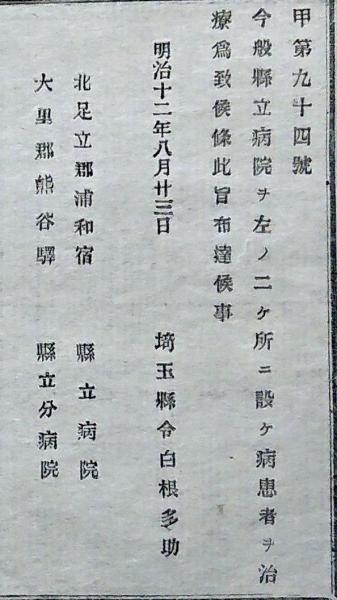 甲第九十四號
今般縣立病院ヲ左ノ二ケ所ニ設ケ病患者ヲ治
療爲致候條此旨布達候事
明治十二年八月廿三日　埼玉縣令白根多助
北足立郡浦和宿　縣立病院
大里郡熊谷驛　縣立分病院